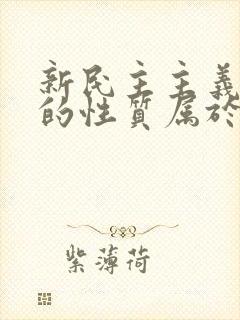 新民主主義
的性質属於
紫薄荷